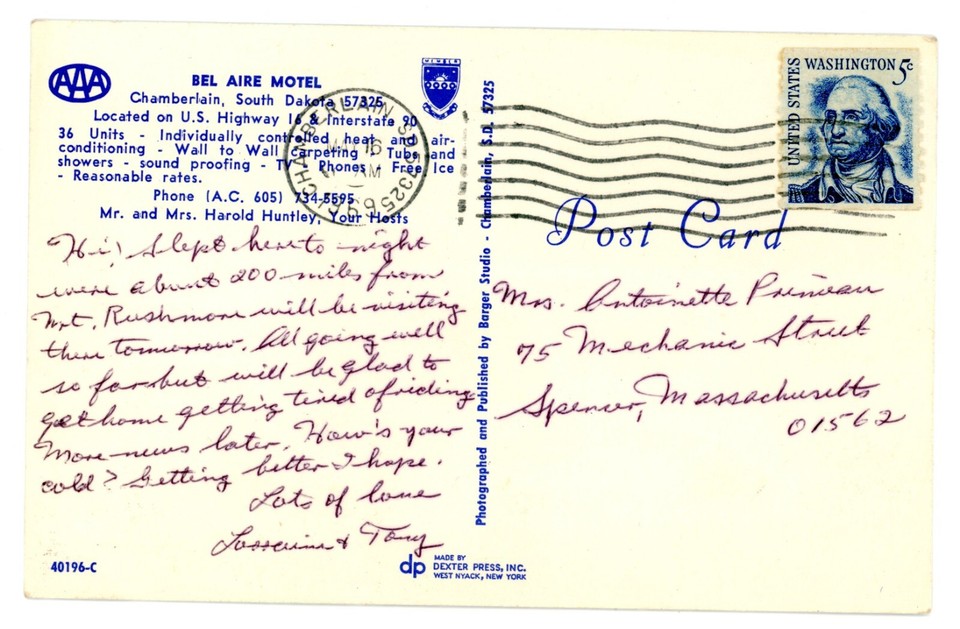 AAA
BEL AIRE MOTEL
Chamberlain, South Dakota 57325
Located on U.S. Highway 16 & Interstate 90
36 Units - Individually controlled heat and air-
conditioning - Wall to Wall Carpeting - Tubs and
showers - sound proofing - TV - Phones - Free Ice
- Reasonable rates.
Phone (A.C. 605) 734-5595
Mr. and Mrs. Harold Huntley, Your Hosts
CHAMBERLAIN S.D. 57325
16
AM
UNITED STATES
WASHINGTON 5c
Post Card
Hi! Slept here to night
were about 200 miles from
Mt. Rushmore will be visiting
there tomorrow. All going well
so far but will be glad to
get home getting tired of riding
More news later. How's your
cold? Getting better I hope.
Lots of love
Lorraine & Tony
Photographed and Published by Barger Studio - Chamberlain, S.D. 57325
Mrs. Antoinette Primeau
75 Mechanic Street
Spencer, Massachusetts
01562
40196-C
dp
MADE BY
DEXTER PRESS, INC.
WEST NYACK, NEW YORK